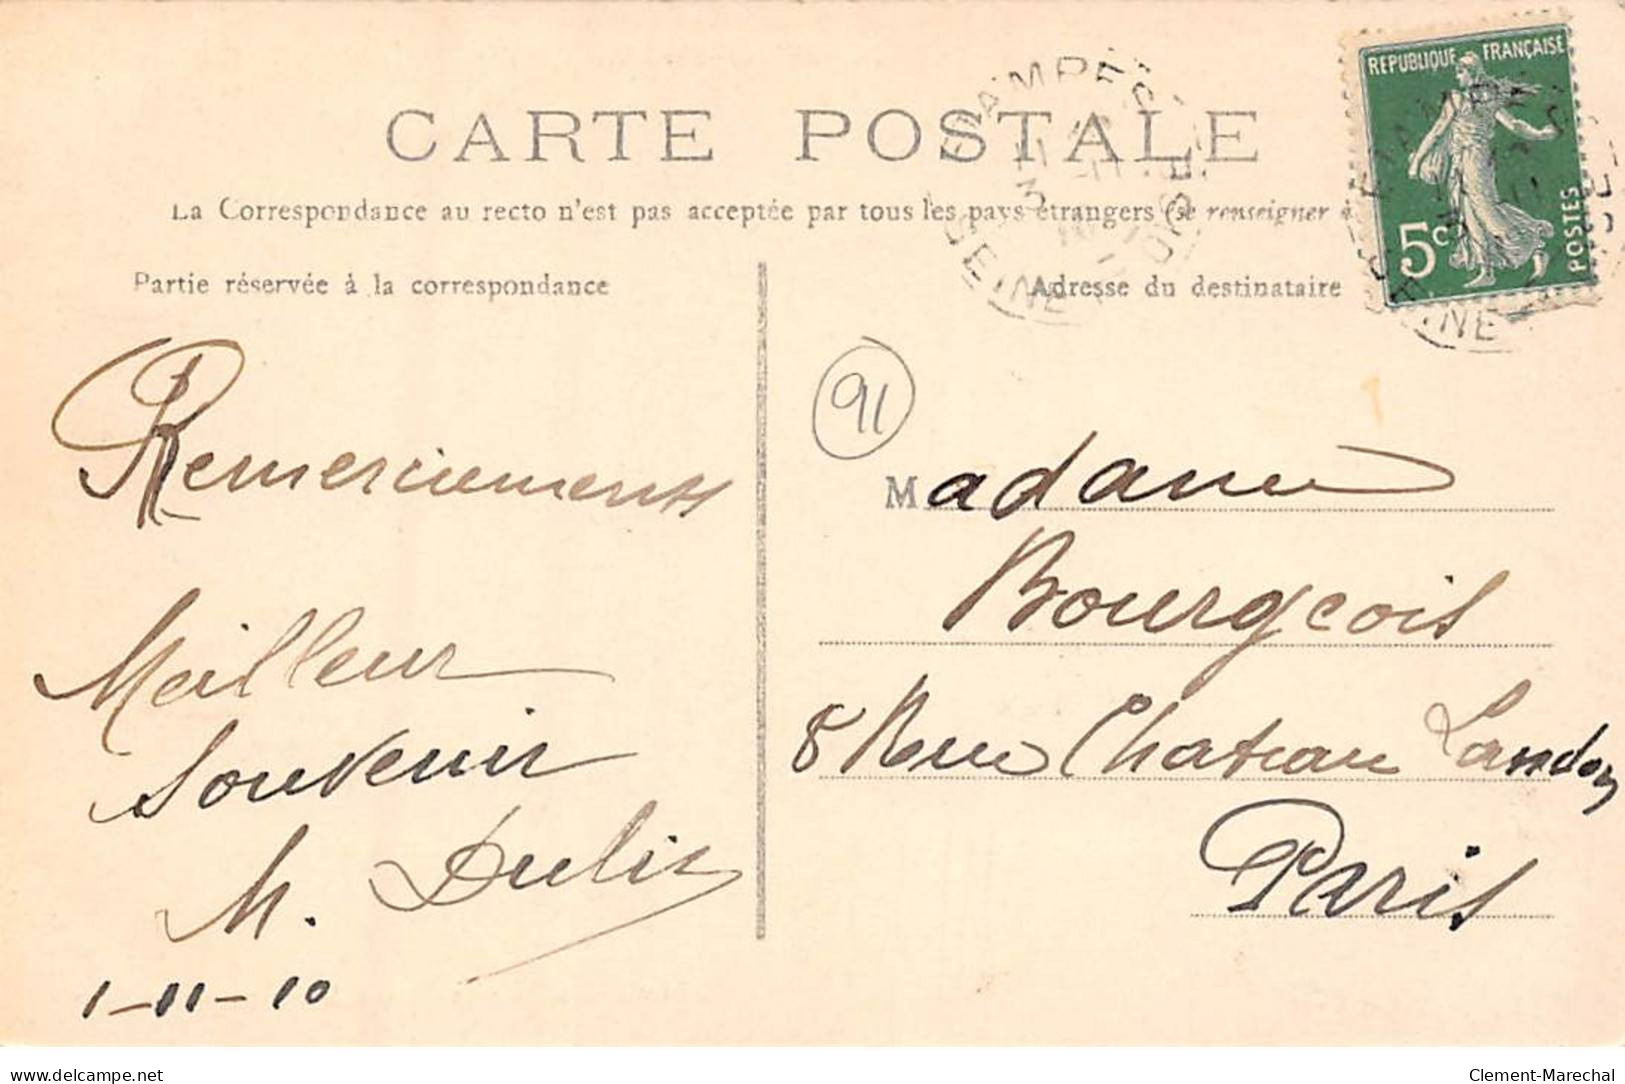 CARTE POSTALE
REPUBLIQUE FRANÇAISE
5c
POSTES
La Correspondance au recto n'est pas acceptée par tous les pays étrangers (se renseigner
Partie réservée à la correspondance
Adresse du destinataire
ETAMPES
SEINE
ETAMPES
SEINE
91
Remerciements
Meilleur
Souvenir
M.
1-11-10
Madame
Bourgeois
8 Rue Chateau Landon
Paris
www.delcampe.net
Clement-Marechal